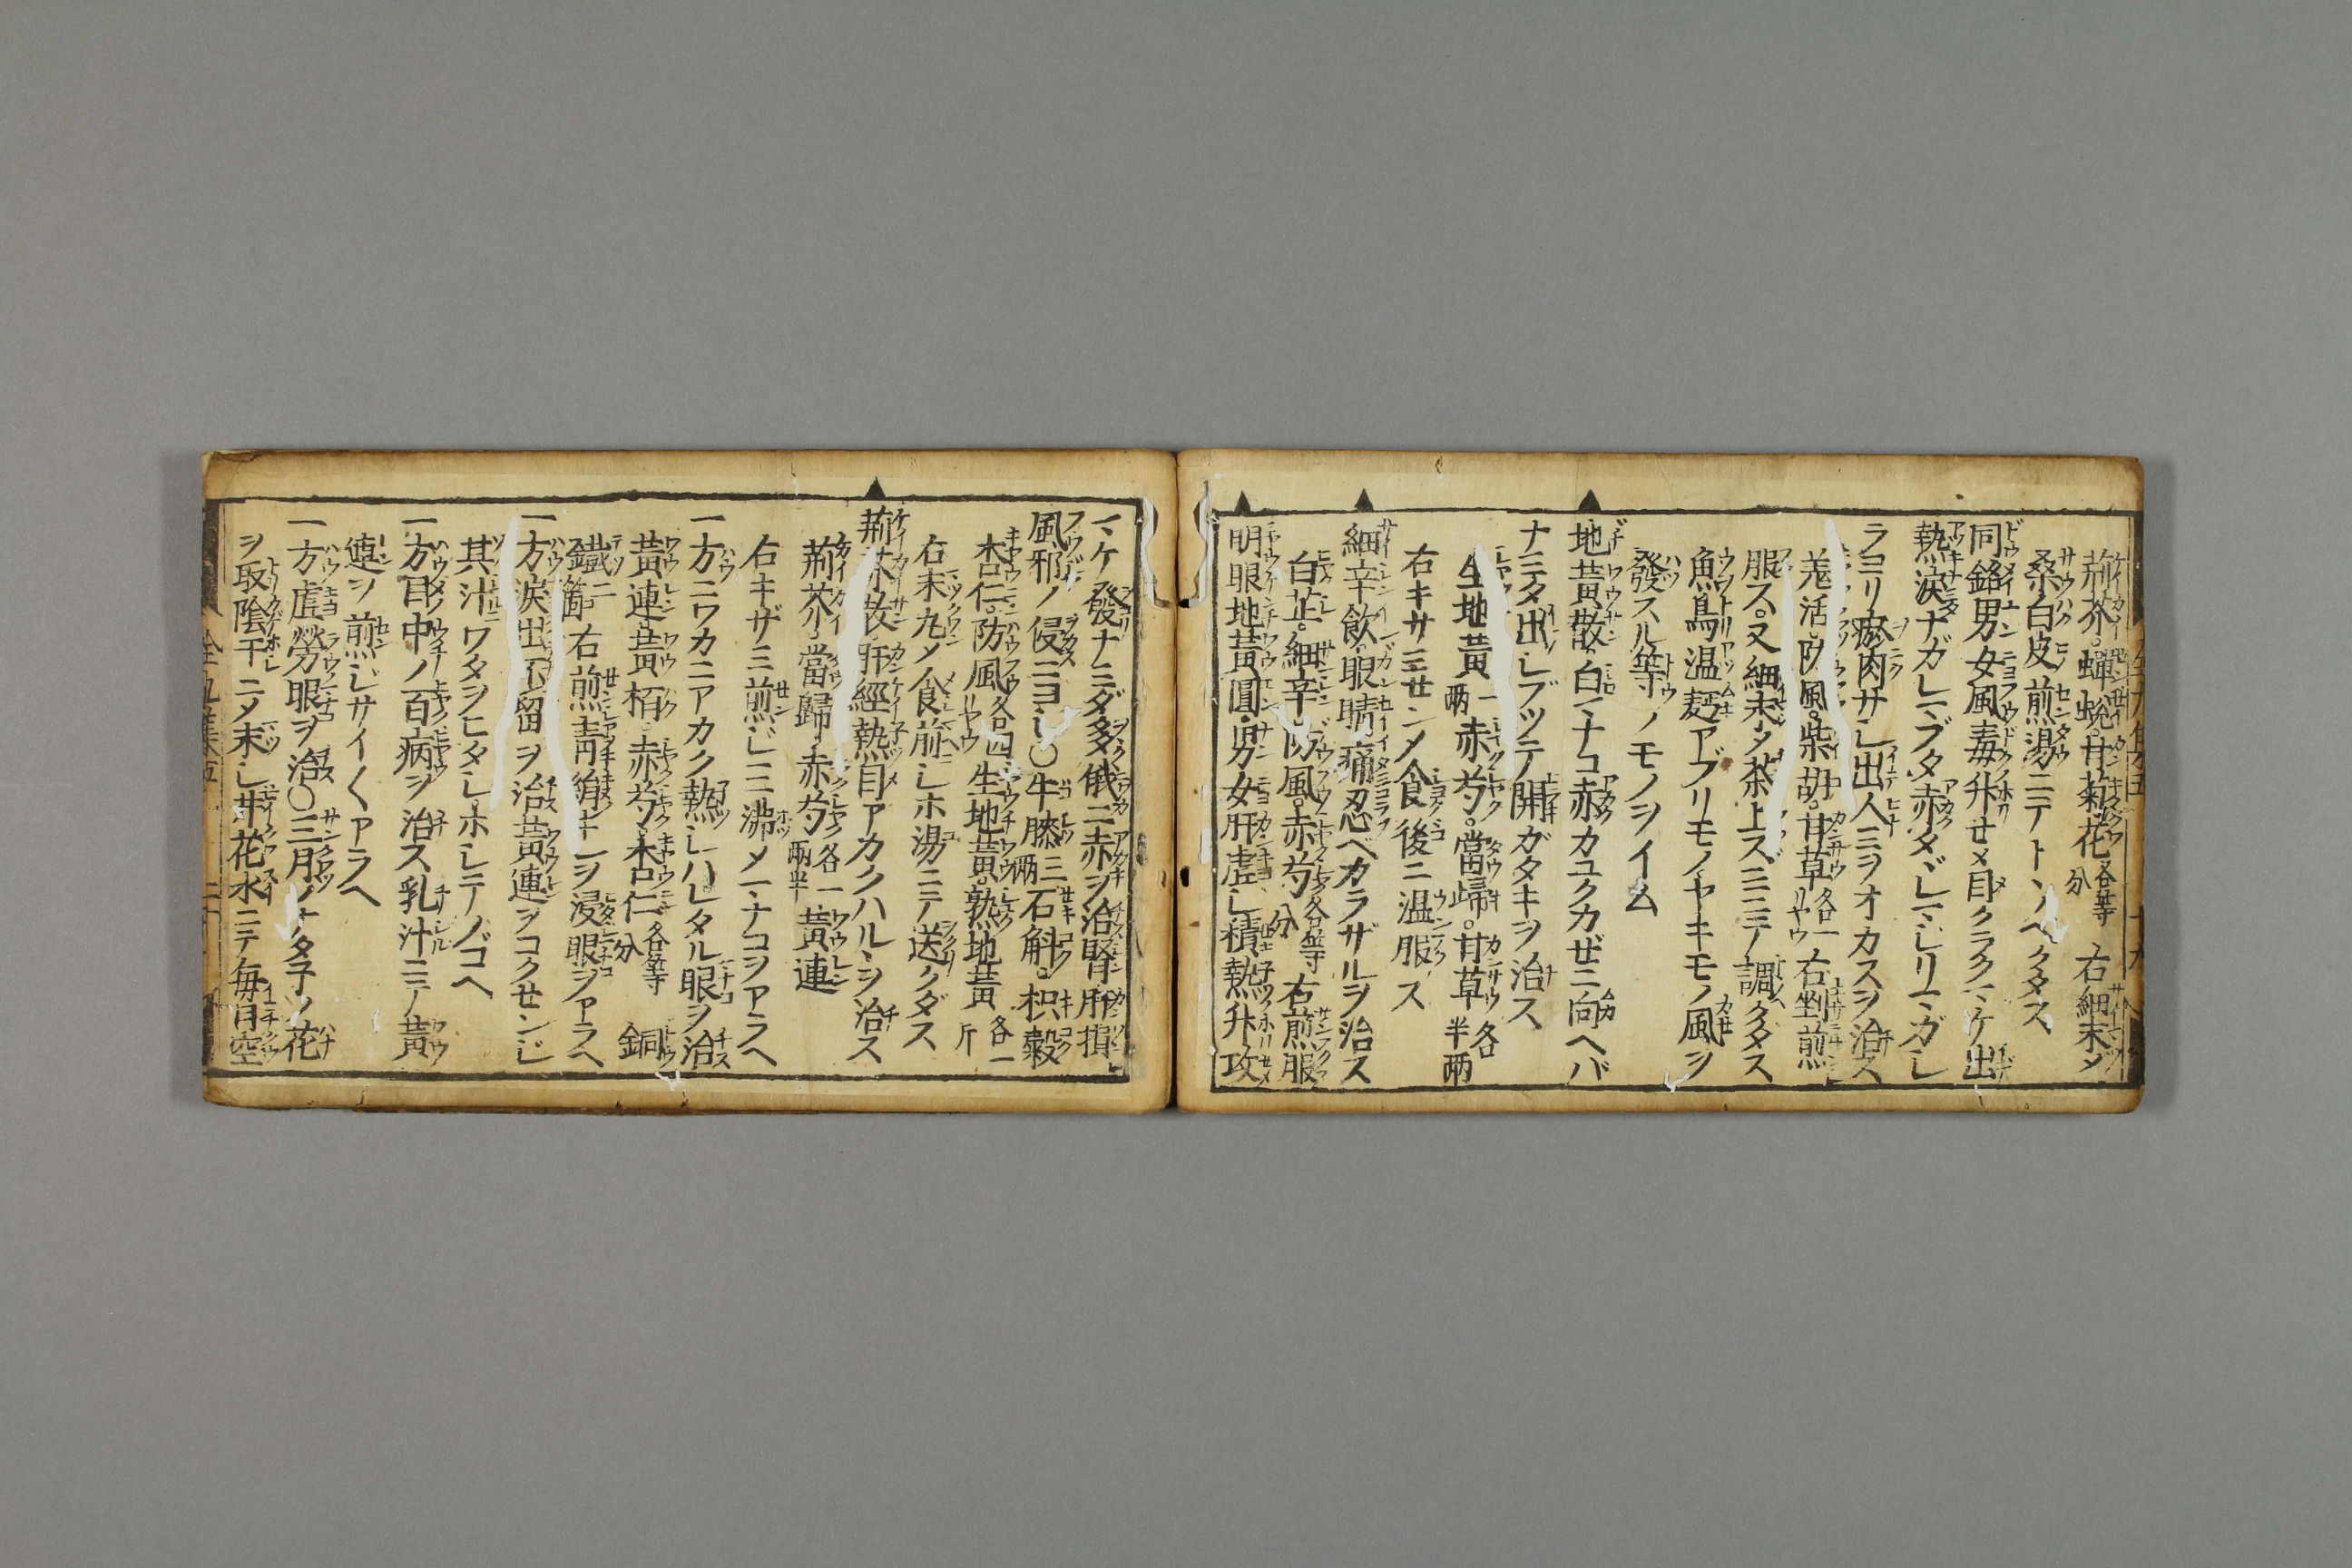 荊芥。蟬蛻。甘菊花各等分 右細末シ
桑白皮煎湯ニテトヽノヘクタス
同銘男女風毒升せメ目クラクヤケ出
熱淚ナガレマブタ赤タヾレマジリマガレ
ラコリ瘀肉サシ出人ミヲオカスヲ治ス
羗活。防風。柴胡。甘草各一 右剉煎
服ス。又細末〆茶上スミニテ調クタス
魚鳥温麪アブリモノヤキモノ風ヲ
發スル等ノモノヲイム
地黃散白マナコ赤カユクカゼニ向ヘバ
ナミタ出シブツテ開ガタキヲ治ス
生地黃一兩 赤芍。當歸。甘草各半兩
右キサミせン〆食後ニ温服ス
細辛飲眼睛痛忍ベカラザルヲ治ス
白芷。細辛。防風。赤芍各等分 右煎服
明眼地黃圓男女肝虛シ積熱升攻
ヤケ發ナミダ多俄ニ赤ヲ治腎肝損
風邪ノ侵ニヨシ〇牛膝三兩石斛枳穀
杏仁防風各四 生地黃熟地黃各一斤
右末丸〆食前シホ湯ニテ送クダス
荊芥散肝經熱目アカクハルヽヲ治ス
荊芥當歸赤芍各一兩半 黃連
右キザミ煎ジ二三沸〆マナコヲアラヘ
一方ニワカニアカク熱シハレタル眼ヲ治
黃連黃栢赤芍杏仁各等分 銅
鐵二箇右煎靑絹キレヲ浸眼ヲアラヘ
一方淚出不留ヲ治黃連ヲコクせンジ
其汁ワタヲヒタシホシテノゴヘ
一方目中ノ百病ヲ治ス乳汁ニテ黃
連ヲ煎ジサイ〱アラヘ
一方虛勞眼ヲ治〇三月ノナタネノ花
ヲ取陰干ニ〆末シ井花水ニテ毎日空